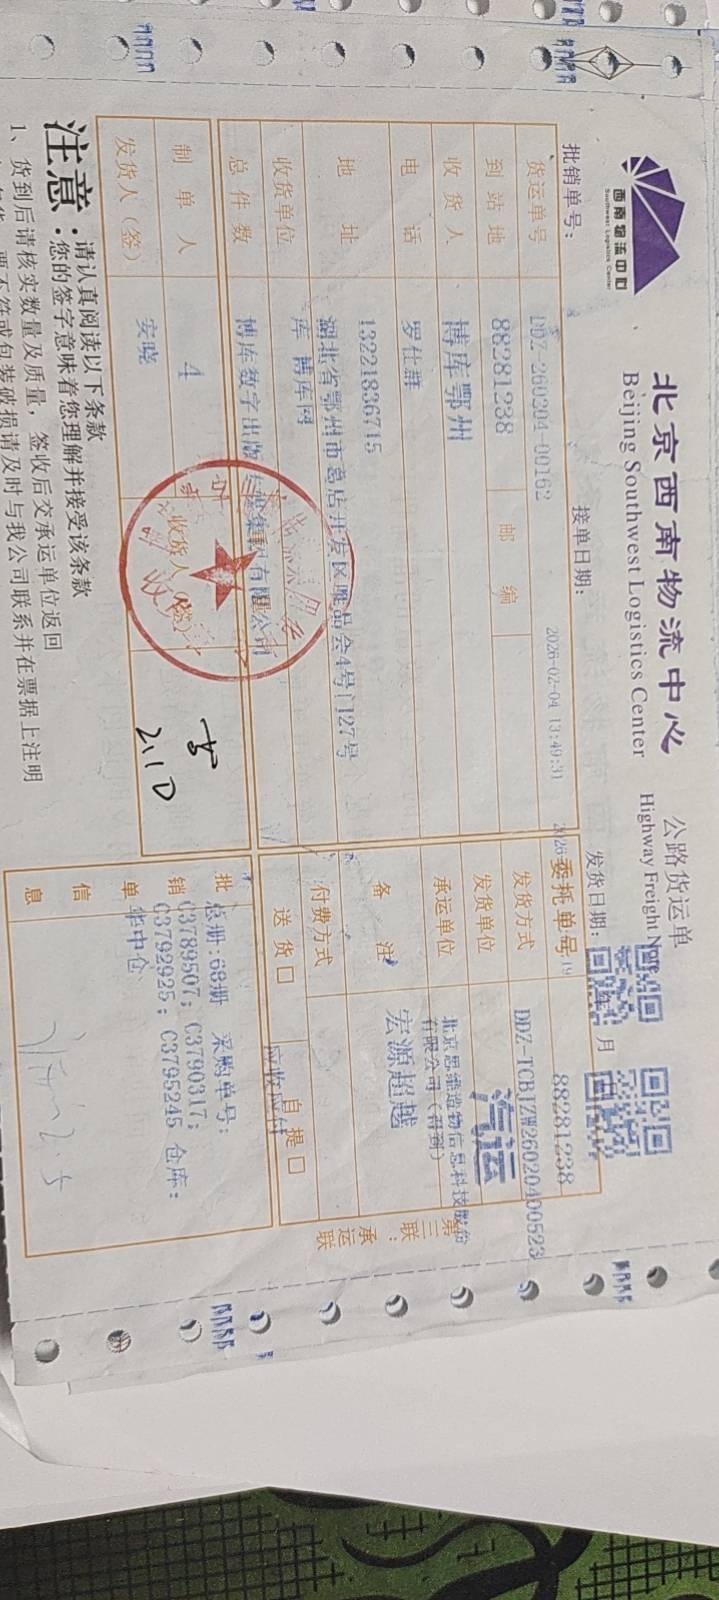 西南物流中心
Southwest Logistics Center
北京西南物流中心
Beijing Southwest Logistics Center
公路货运单
Highway Freight Note
批销单号：
接单日期：
发货日期： 年 月 日
2026-02-04 13:49:31
货运单号 DDZ-260204-00162
委托单号 88281238
到站地 88281238 邮编
发货方式 DDZ-TCBJZW26020400523
收货人 博库鄂州
发货单位 汽运
电话 罗仕群
承运单位 北京思维造物信息科技股份有限公司
地址 13221836715
湖北省鄂州市葛店开发区唯品会4号门127号
库 博库网
备注 宏源超越
收货单位
博库数字出版传媒集团有限公司
付费方式
总件数
送货□ 自提□
应收应付
制单人 4
收货人
发货人（签） 安晓
2.10
批销单信息
总册:68册 采购单号:
C3789507; C3790317;
C3792925; C3795245 仓库:
华中仓
2.5
第三联：承运联
注意：请认真阅读以下条款
您的签字意味着您理解并接受该条款
1、货到后请核实数量及质量，签收后交承运单位返回
要不符或包装破损请及时与我公司联系并在票据上注明